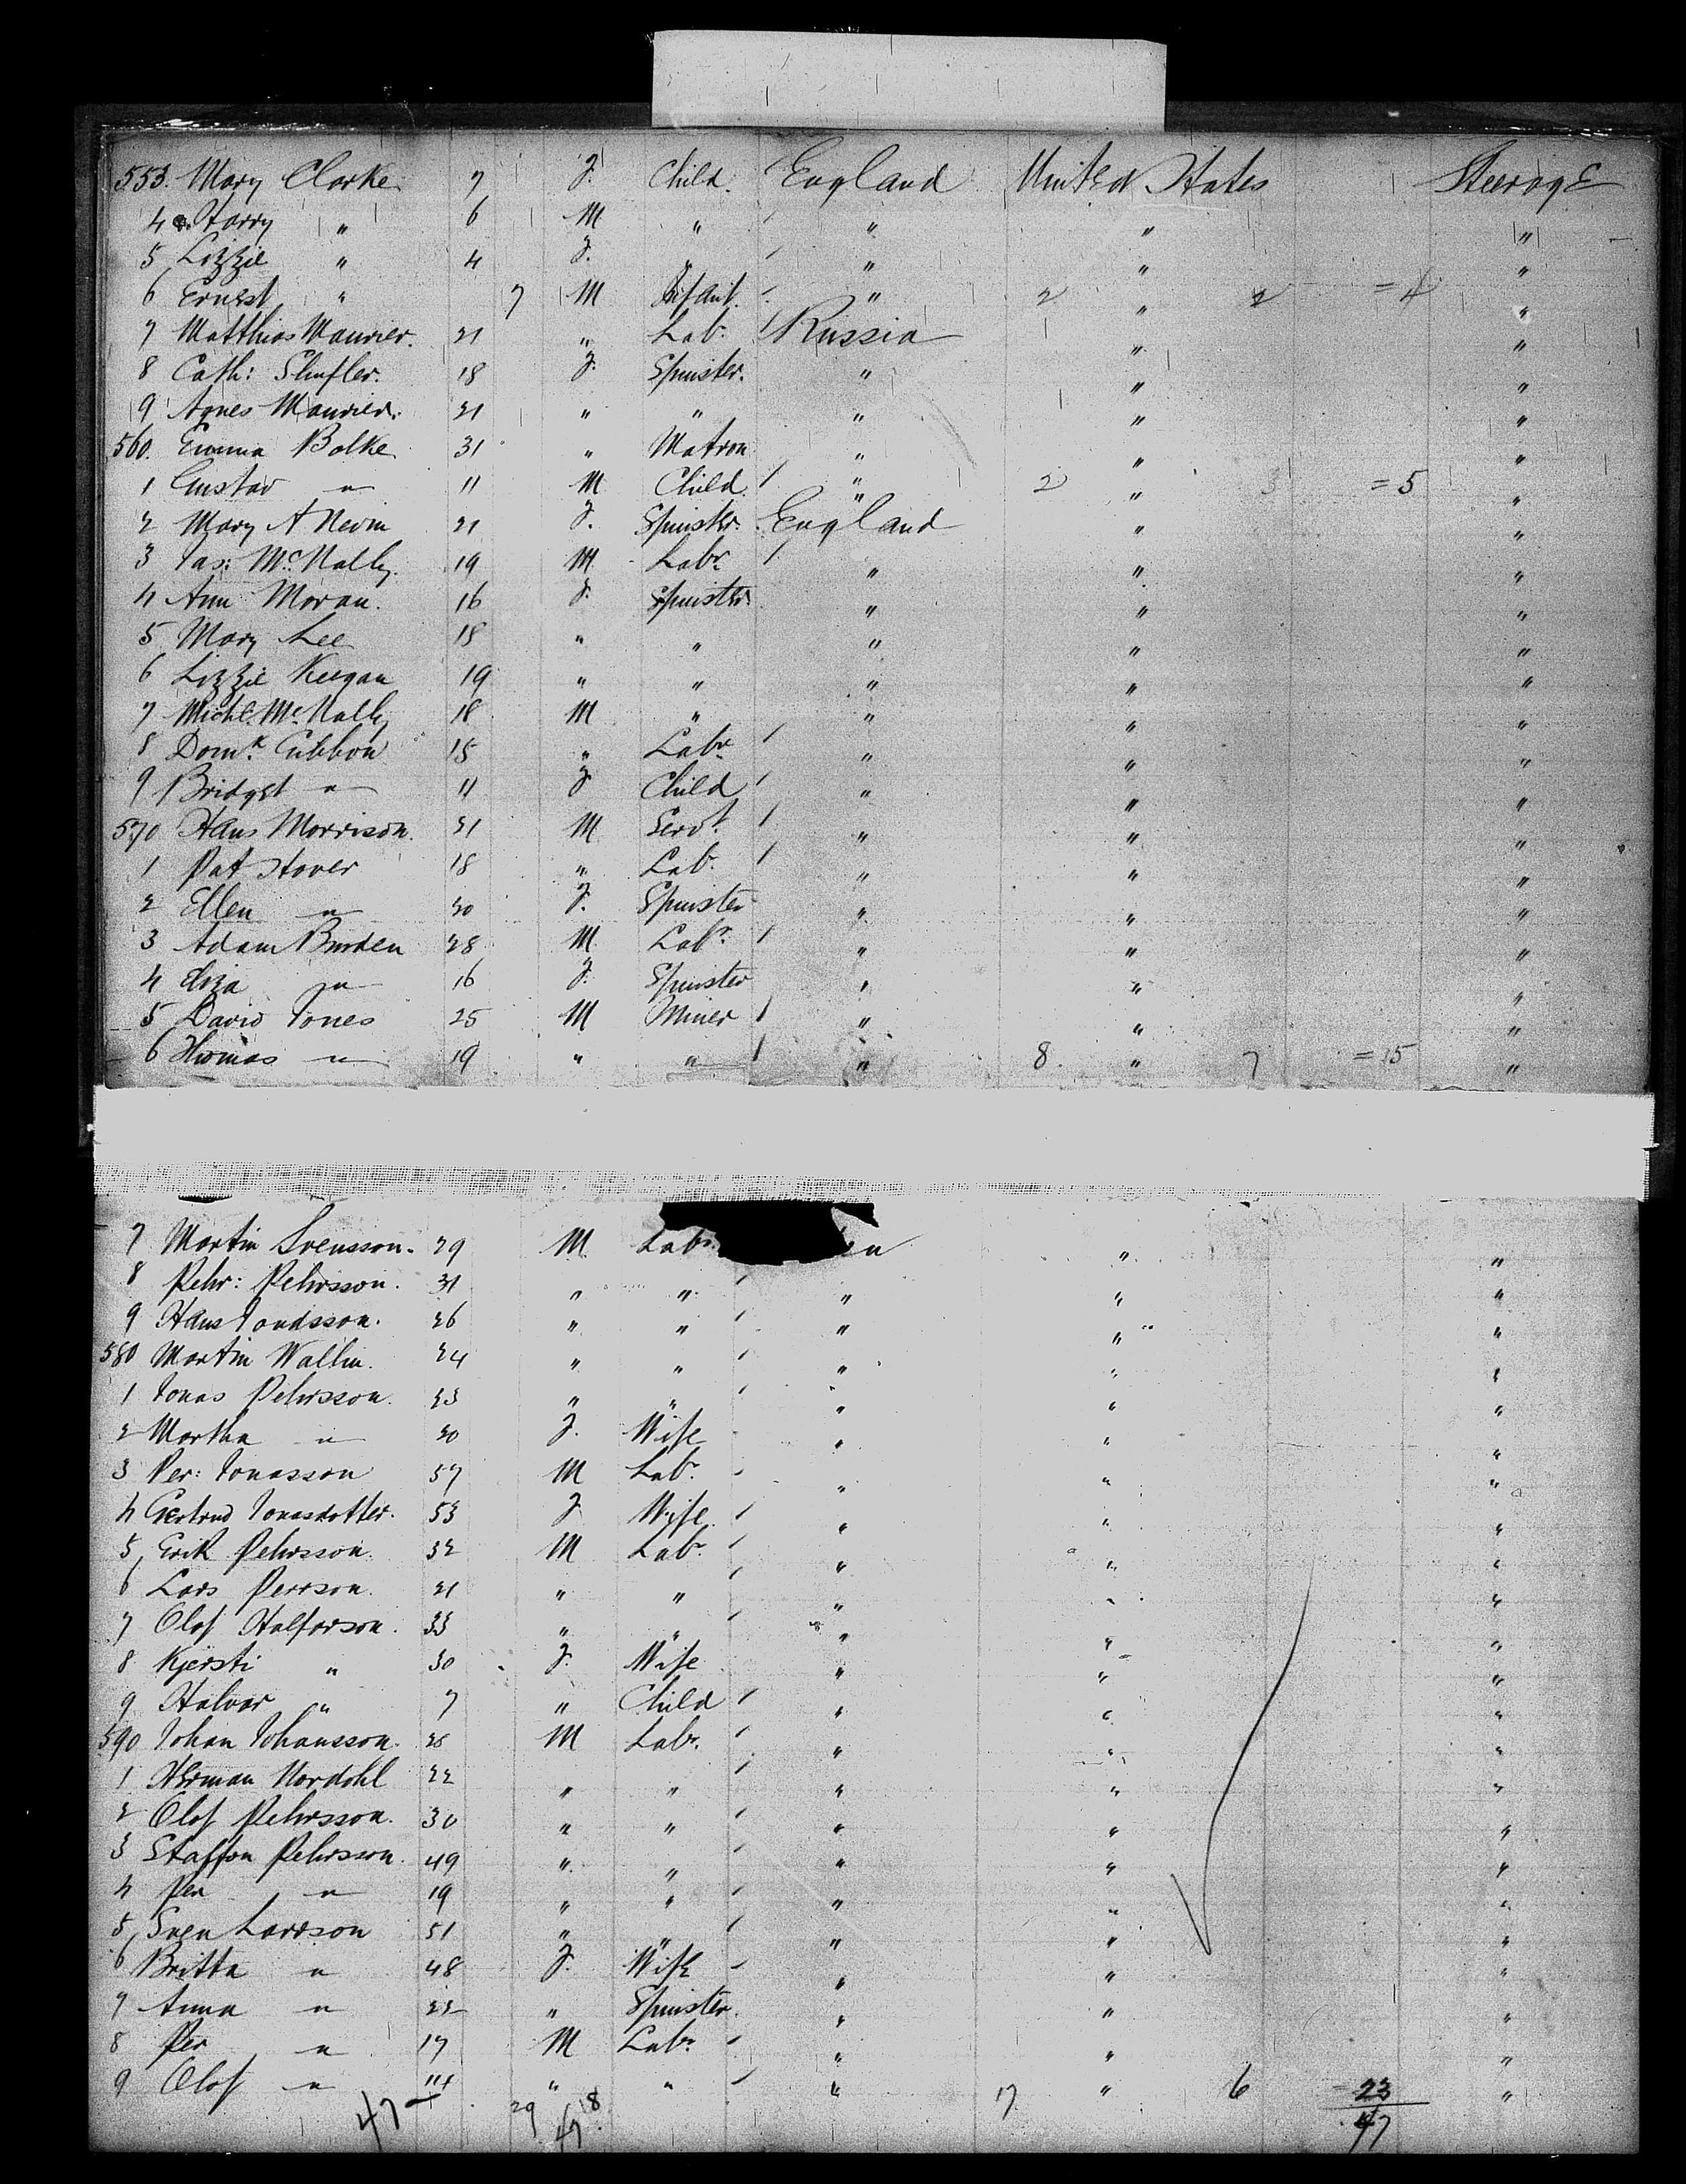 553. Mary Clarke 7 F. Child. England United States Steerage
4 Harry " 6 M " " " "
5 Lizzie " 4 F. " " " "
6 Ernest " 7 M Infant. " 2 " 2 = 4 "
7 Matthias Maurier. 21 " Labr. Russia " "
8 Cath: 18 F. Spinster. " " "
9 Agnes Maurier. 21 " " " " "
560. Emma Bolke 31 " Matron " " "
1 Gustav " 11 M Child " 2 " 3 = 5 "
2 Mary A Nevin 21 F. Spinster. England " "
3 Jas: McNally. 19 M Labr. " " "
4 Ann Moran. 16 F. Spinster " " "
5 Mary Lee 18 " " " " "
6 Lizzie Keegan 19 " " " " "
7 Michl. McNally 18 M " " " "
8 Domk. Cubbon 15 " Labr. " " "
9 Bridget " 11 F Child " " "
570 Hans Morrison. 21 M Servt. " " "
1 Pat Hover 18 " Labr. " " "
2 Ellen " 20 F. Spinster " " "
3 Adam Burden 28 M Labr. " " "
4 Eliza " 16 F. Spinster " " "
5 David Jones 25 M Miner " " "
6 Thomas " 19 " " " 8. " 7 = 15 "
7 Martin Svensson. 29 M Labr. en " "
8 Pehr: Pehrsson. 31 " " " " "
9 Hans 26 " " " " "
580 Martin Wallin. 24 " " " " "
1 Jonas Pehrsson. 23 " " " " "
2 Martha " 20 F. Wife " " "
3 Per: Jonasson 57 M Labr. " " "
4 Gertrud Jonasdotter. 53 F Wife. " " "
5 Erik Pehrsson. 32 M Labr. " " "
6 Lars Persson. 21 " " " " "
7 Olof Halfarson. 33 " " " " "
8 Kjersti " 30 F. Wife " " "
9 Halvar " 7 " Child " " "
590 Johan Johansson. 26 M Labr. " " "
1 Herman Nordahl 22 " " " " "
2 Olof Pehrsson. 30 " " " " "
3 Staffan Pehrsson. 49 " " " " "
4 Per " 19 " " " " "
5 Sven Larsson 51 " " " " "
6 Britta " 48 F. Wife " " "
7 Anna " 22 " Spinster. " " "
8 Per " 17 M Labr. " " "
9 Olof " 14 " " " 17 " 6 23 "
47 29 18 47
47